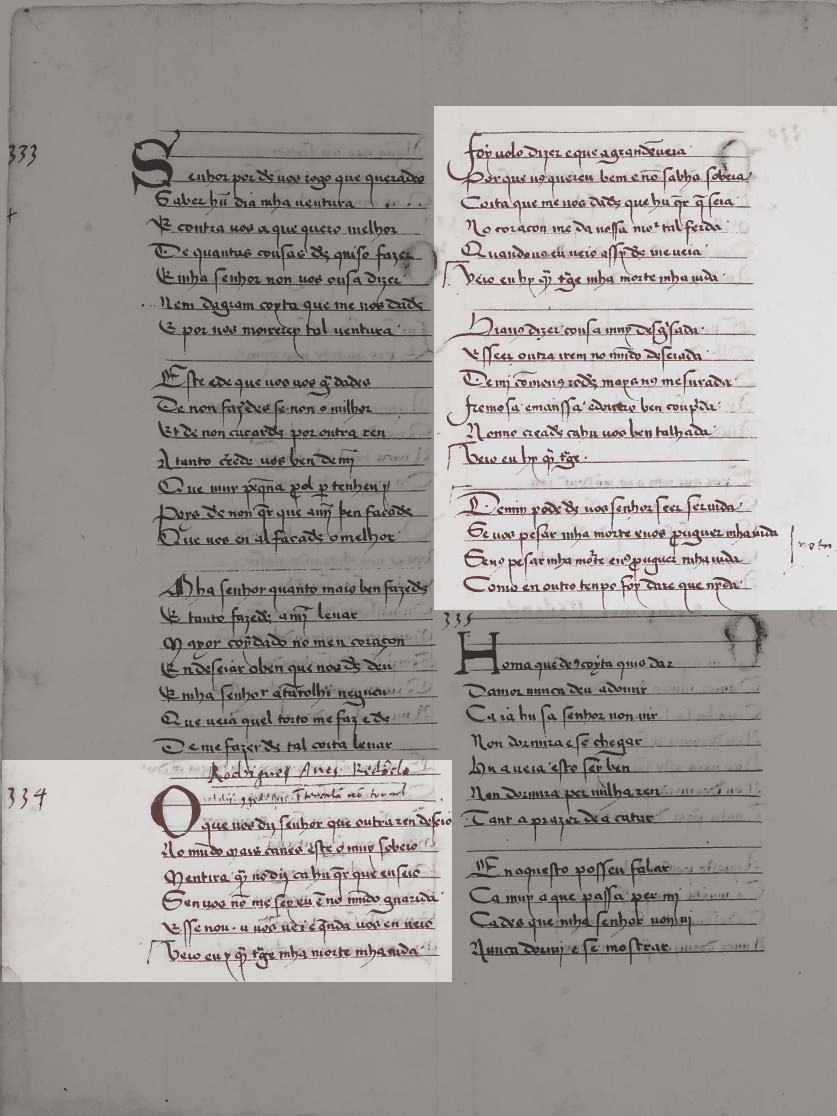 333
Senhor por d's uos rogo que querades
Saber hũ dia mha uentura
E contra uos a que quero melhor
De quantas cousas d's quiso fazer
E mha senhor non uos ousa dizer
Nem dagram coyta que me uos dades
E por uos morrerey tal uentura
Este ede que uos uos g'dades
De non fazerdes se non o milhor
Et de non por outra ren
A tanto creede uos ben de mj̃
Que muy peq̃na prol p' tenhen y
Poys de non q'r que amj̃ ben facades
Que uos en al facades o melhor
Mha senhor quanto mais ben fazedes
E tanto fazedes amj̃ leuar
Mayor coydado no meu coraçon
En deseiar oben que uos d's deu
E mha senhor neguen
Que ueia quel torto me faz e d's
De me fazer d's tal coita leuar
334
Rodrigues Anes Redõdo
O que uos diz senhor que outra ren deseio
No mũdo mays canes este o muy sobeio
Mentira q̃ nõ diz ca hu q'r que en seio
Sen uos nõ me sey eu ẽ no mũdo guarida
E sse non u uos uei e q̃nda uos en ueio
Veio eu y q̃ t'ge mha morte mha uida
Foy uolo dizer e que a grand ẽueia
Por que uos quereu bem e nõ sabha sobeia
Coita que me uos dades que hu q'r q̃ seia
No coraçon me da uossa mort tal ferida
Quando uos eu ueio assy de me ueia
Veio eu hy q̃ t'ge mha morte mha uida
Hiauos dizer cousa muy desg'sada
E sseer outra uem no mũdo deseiada
De mi comeu9 rod's mays n9 mesurada
fremosa e manssa edoutro ben comp'da
Nonno creades cahu uos ben talhada
Veio eu hy q̃ t'ge
Demin pode d's uos senhor seer seruida
Se uos pesar mha morte euos prouguer mha uida
Seu9 pesar mha morte en9 prouguer mha uida
Como en outro tempo foy dare que
335
Homa que d'9 coyta quis dar
Damor nunca deu a dormir
Ca ia hu sa senhor non uir
Non dormira e se chegar
Hu a ueia esto ser ben
Non dormira per nulha ren
Tant a prazer dea catar
E naquesto posseu falar
Ca muy a que passa per mj
Ca des que mha senhor non uj
Nunca dormj e se mostrar